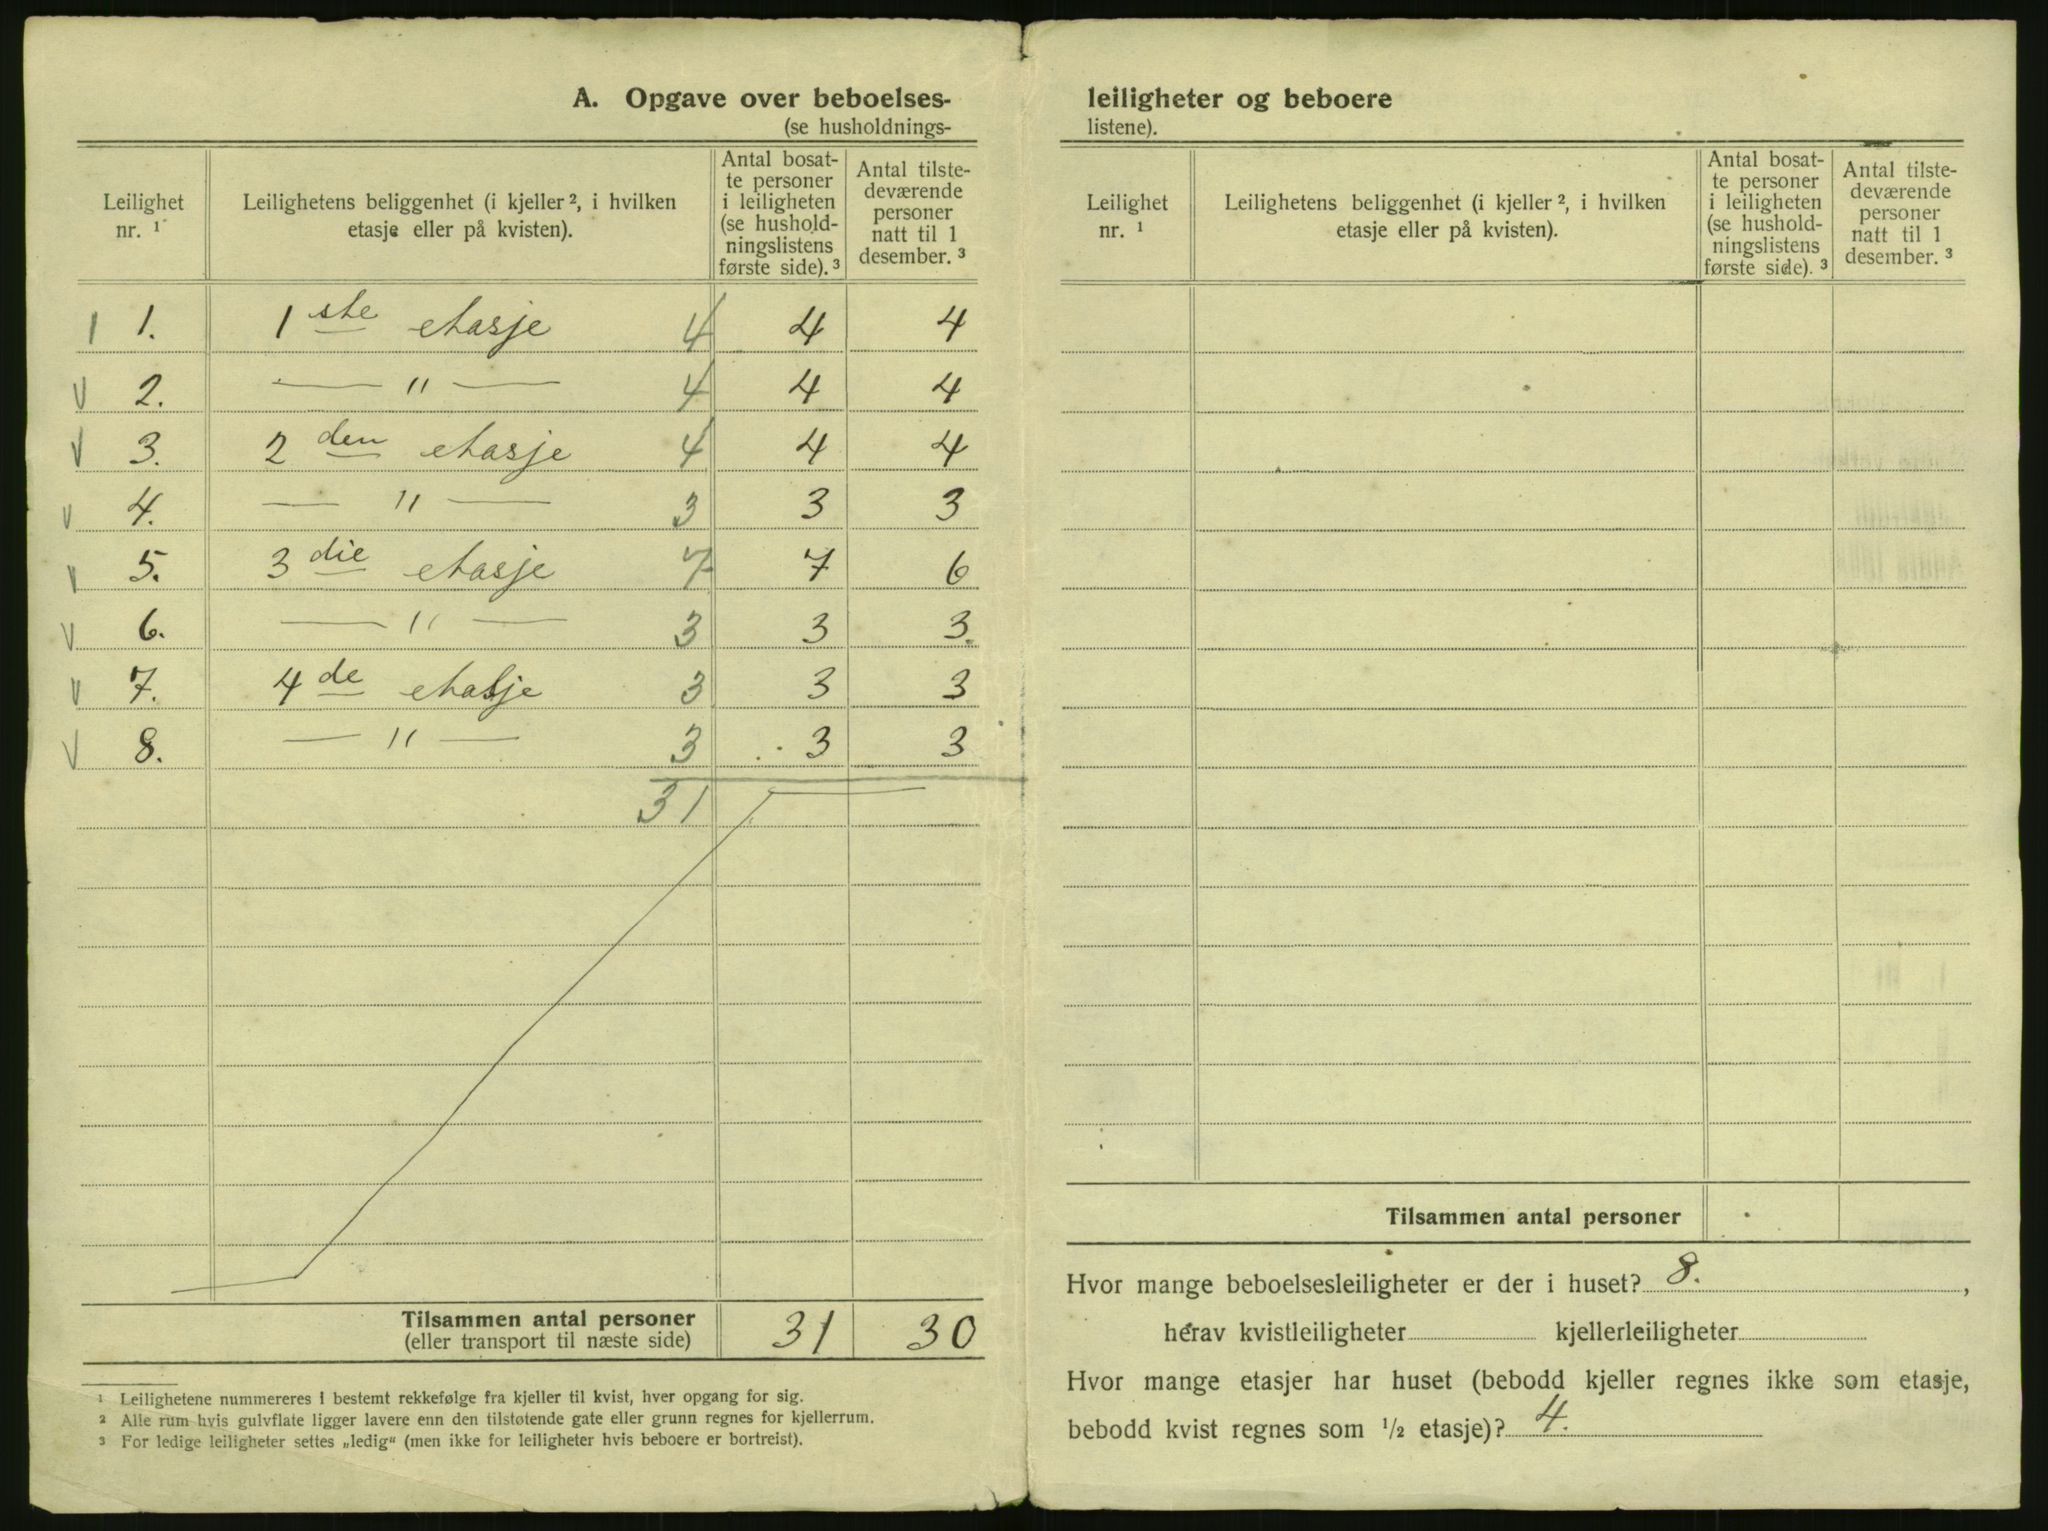 A. Opgave over beboelses-
(se husholdnings-
Leilighet nr. ¹
Leilighetens beliggenhet (i kjeller ², i hvilken etasje eller på kvisten).
Antal bosat-
te personer
i leiligheten
(se hushold-
ningslistens
første side). ³
Antal tilste-
deværende
personer
natt til 1
desember. ³
1 1. 1 ste etasje 4 4 4
v 2. — " — 4 4 4
v 3. 2 den etasje 4 4 4
v 4. — " — 3 3 3
v 5. 3 die etasje 7 7 6
v 6. — " — 3 3 3.
v 7. 4 de etasje 3 3 3
v 8. — " — 3 3 3
31
Tilsammen antal personer 31 30
(eller transport til næste side)
¹ Leilighetene nummereres i bestemt rekkefølge fra kjeller til kvist, hver opgang for sig.
² Alle rum hvis gulvflate ligger lavere enn den tilstøtende gate eller grunn regnes for kjellerrum.
³ For ledige leiligheter settes „ledig“ (men ikke for leiligheter hvis beboere er bortreist).
leiligheter og beboere
listene).
Leilighet nr. ¹
Leilighetens beliggenhet (i kjeller ², i hvilken etasje eller på kvisten).
Antal bosat-
te personer
i leiligheten
(se hushold-
ningslistens
første side). ³
Antal tilste-
deværende
personer
natt til 1
desember. ³
Tilsammen antal personer
Hvor mange beboelsesleiligheter er der i huset? 8. ,
herav kvistleiligheter kjellerleiligheter
Hvor mange etasjer har huset (bebodd kjeller regnes ikke som etasje,
bebodd kvist regnes som ½ etasje)? 4.